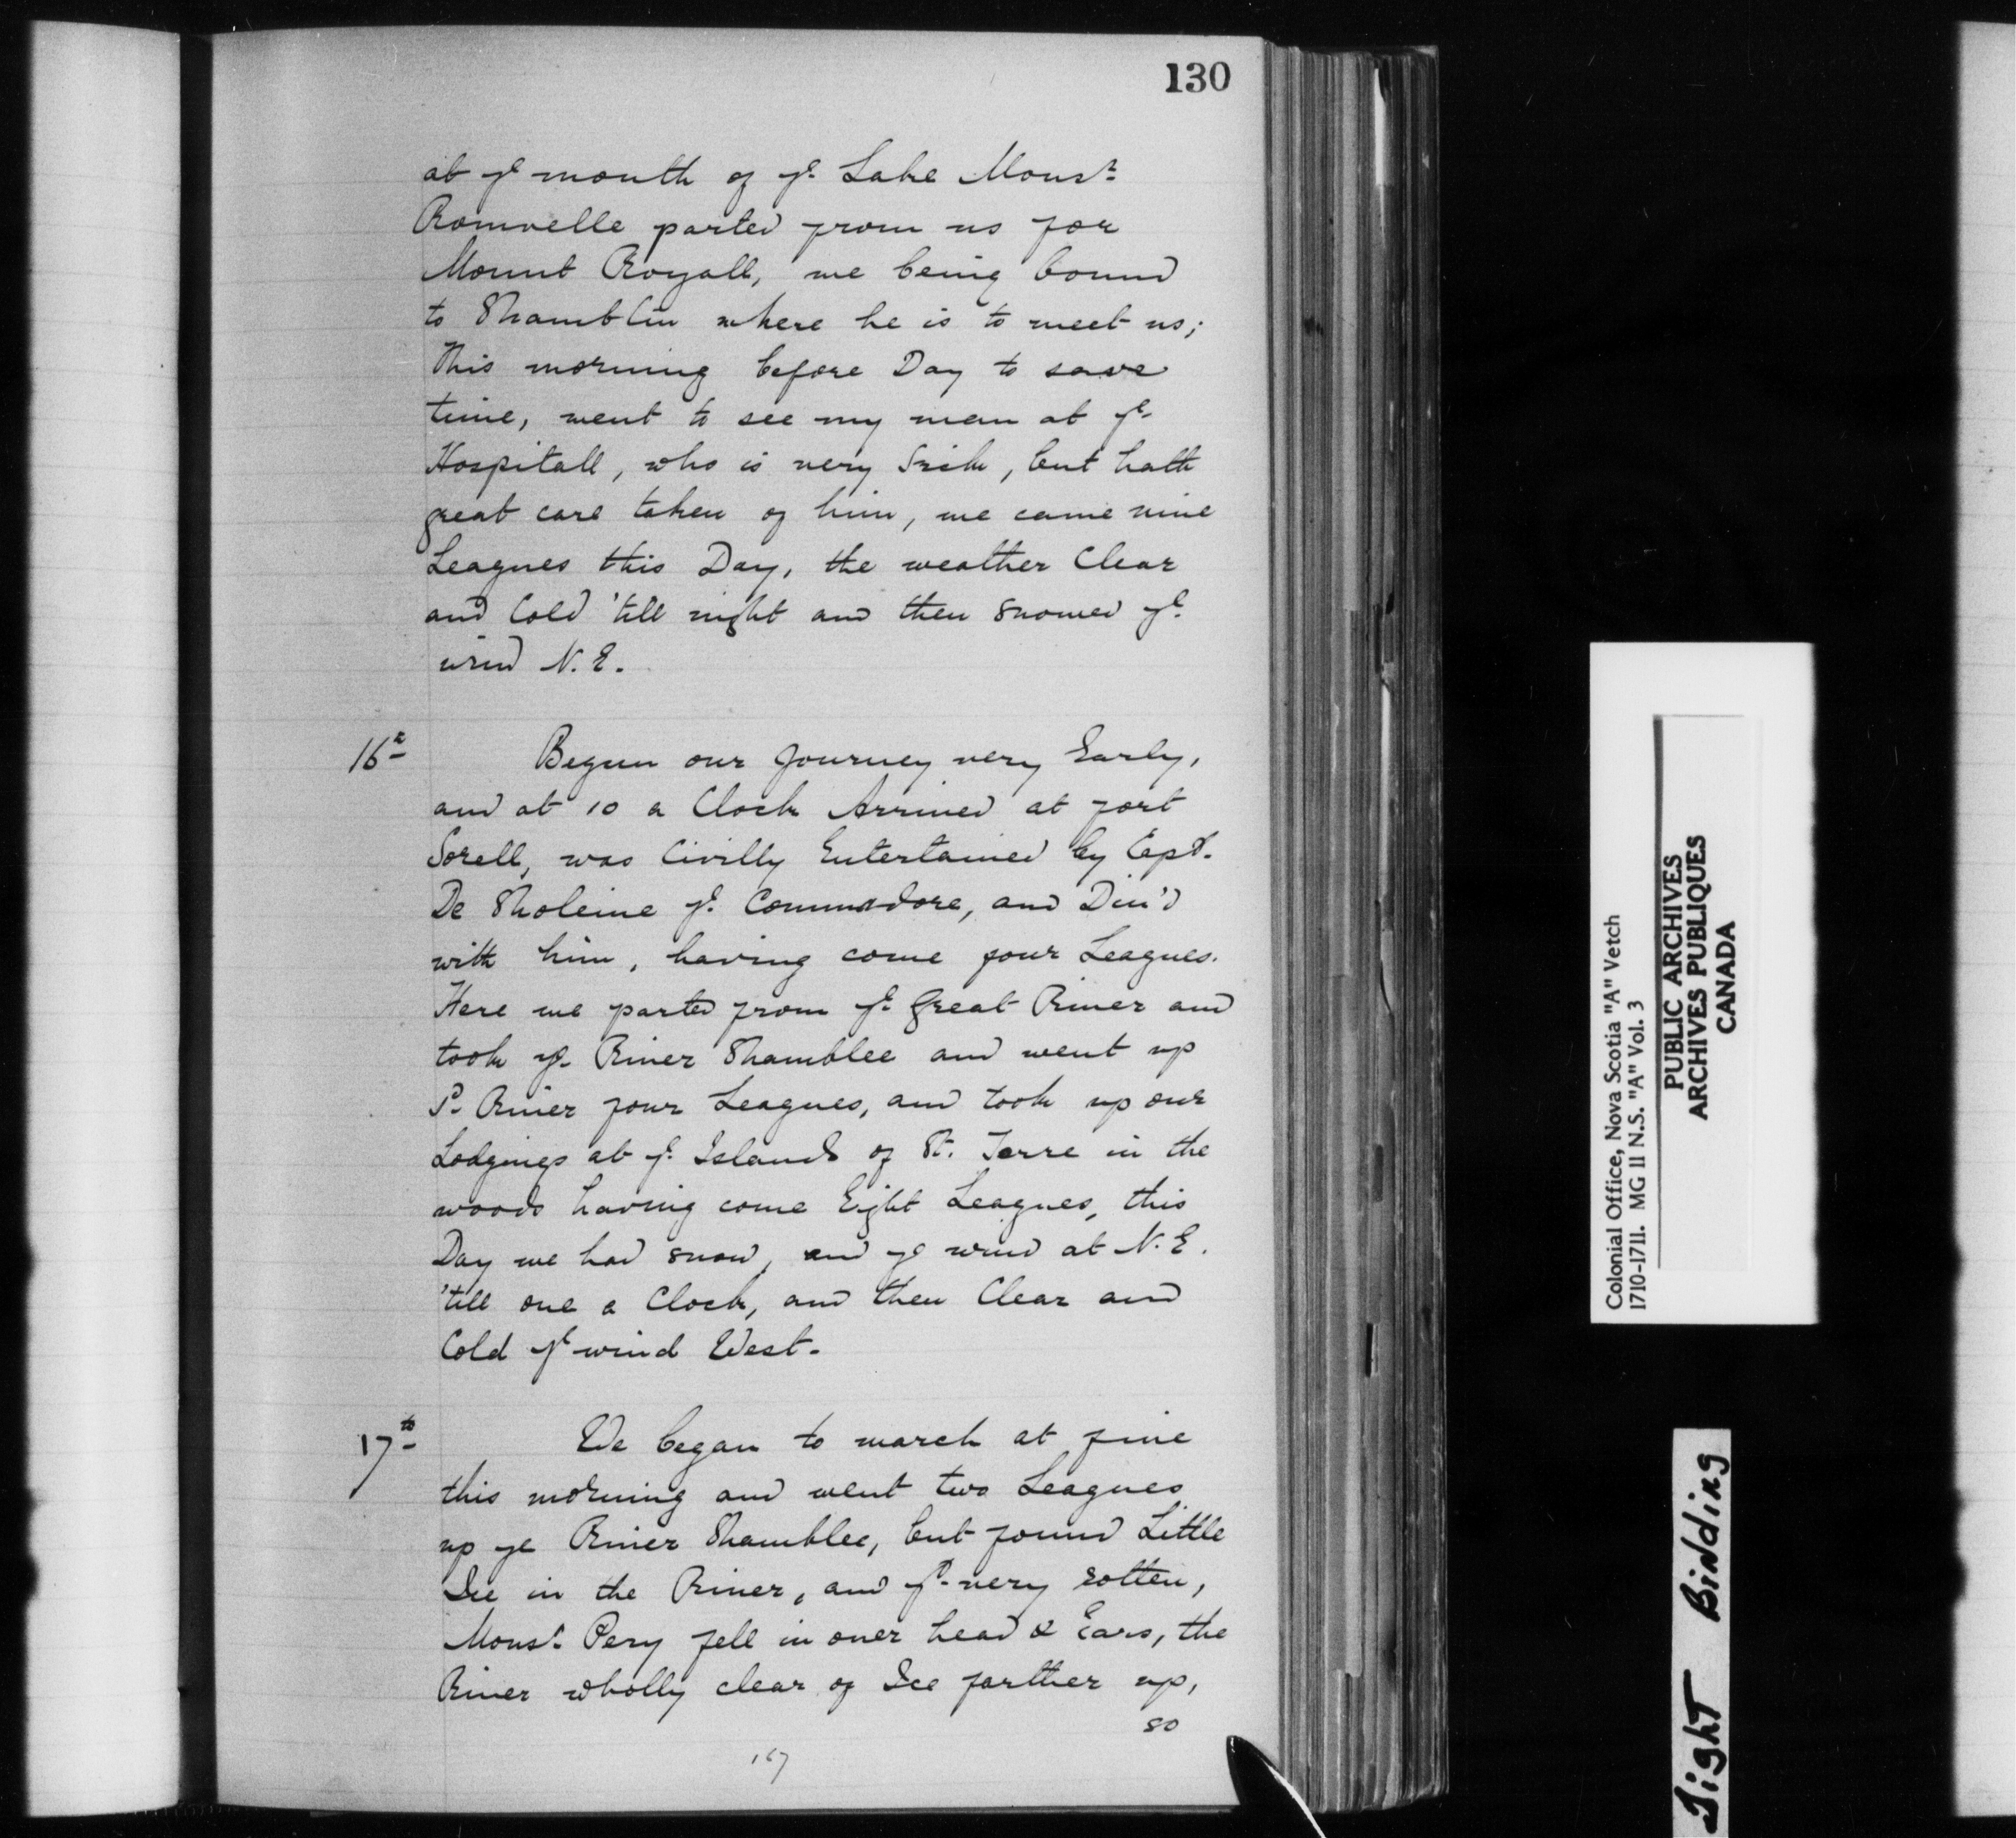 130
at ye mouth of ye Lake Monsr
Romvelle parted from us for
Mount Royall, we being bound
to Shamblin where he is to meet us;
This morning before Day to save
time, went to see my man at ye
Hospitall, who is very Sick, but hath
great care taken of him, we came nine
Leagues this Day, the weather Clear
and Cold 'till night and then snowed ye
wind N. E.
16th Begun our Journey very Early,
and at 10 a Clock Arrived at fort
Sorell, was Civilly Entertained by Capt.
De Sholeine ye Commodore, and Din'd
with him, having come four Leagues.
Here we parted from ye Great River and
took ye River Shamblee and went up
Sd River four Leagues, and took up our
Lodgings at ye Islands of St. Terre in the
woods having come Eight Leagues, this
Day we had snow, and ye wind at N. E.
'till one a Clock, and then Clear and
Cold ye wind West.
17th We began to march at five
this morning and went two Leagues
up ye River Shamblee, but found Little
Ice in the River, and yt very rotten,
Monsr Pery fell in over head & Ears, the
River wholly clear of Ice farther up,
so
167
Colonial Office, Nova Scotia "A" Vetch
1710-1711. MG 11 N.S. "A" Vol. 3
PUBLIC ARCHIVES
ARCHIVES PUBLIQUES
CANADA
Tight Binding